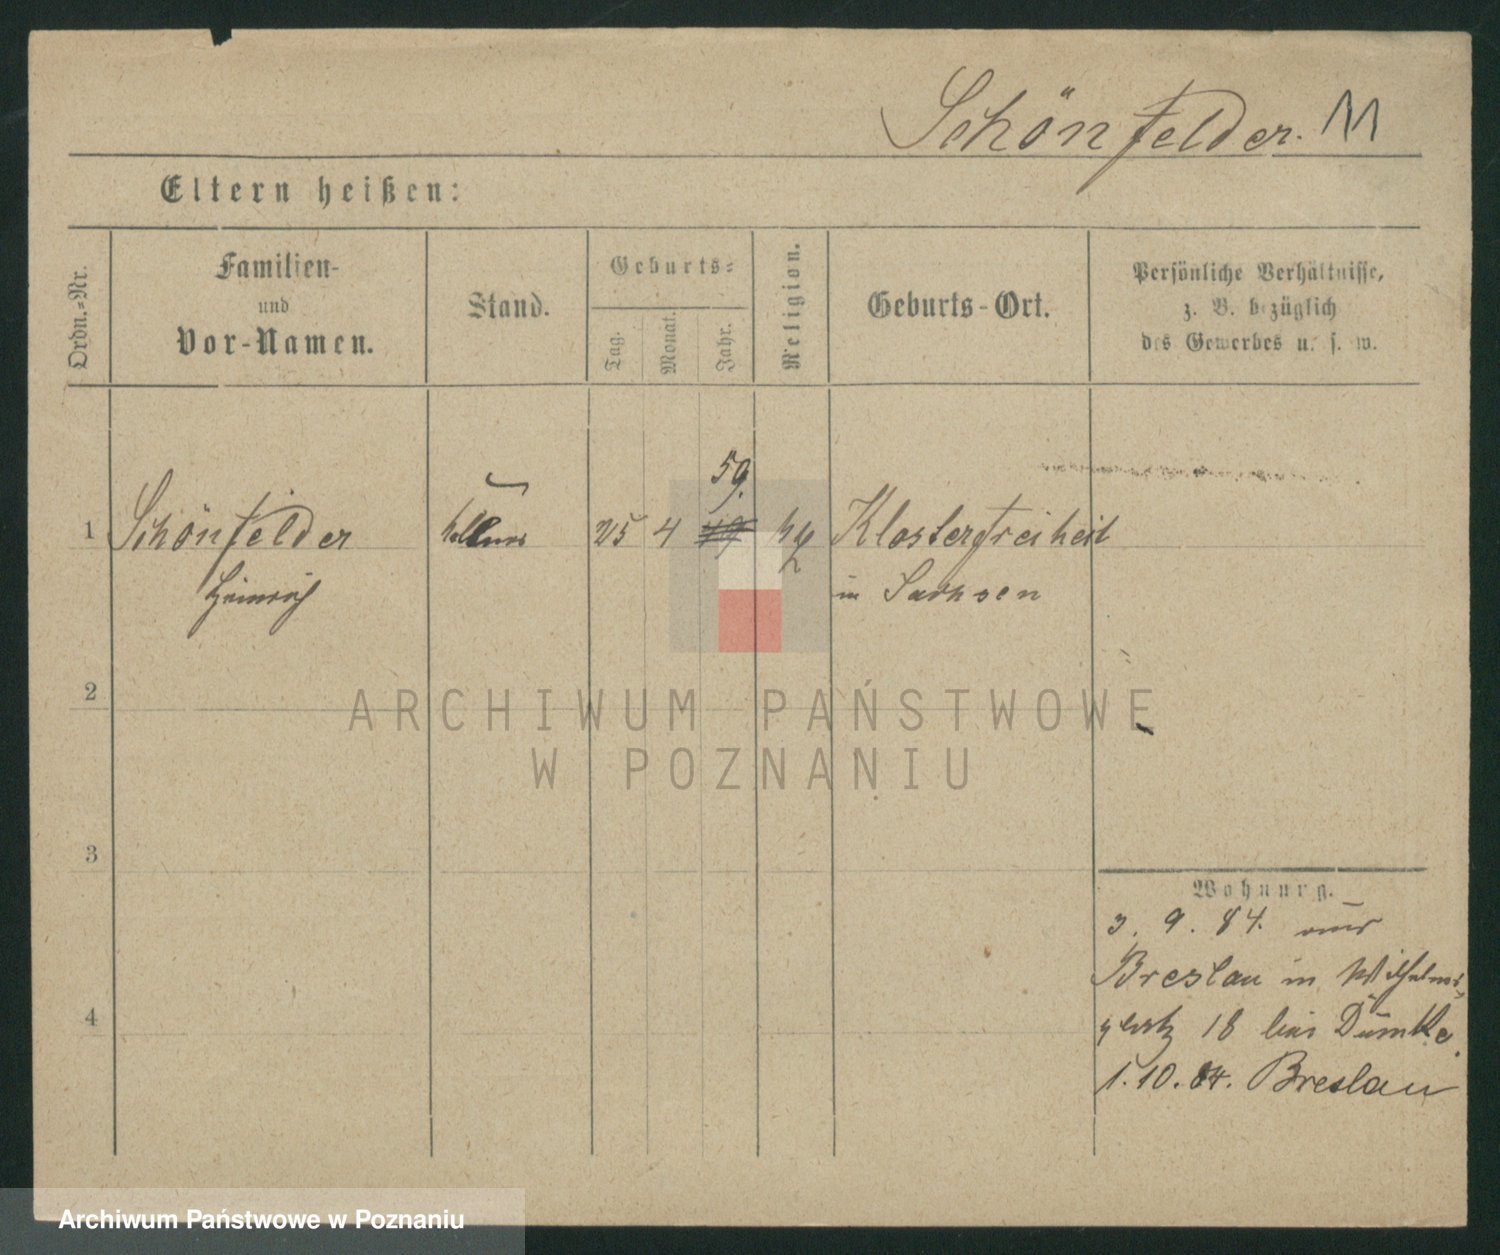 Schönfelder.
Eltern heißen:
Ordn.-Nr.
Familien-
und
Vor-Namen.
Stand.
Geburts-
Tag.
Monat.
Jahr.
Religion.
Geburts-Ort.
Persönliche Verhältnisse,
z. B. bezüglich
des Gewerbes u. s. w.
59.
1 Schönfelder Kellner 25 4 Klosterfreiheit
Heinrich in Sachsen
2
ARCHIWUM PAŃSTWOWE
W POZNANIU
3
Wohnung.
3. 9. 84. aus
Breslau in Wilhelms-
platz 18 bei Dümke.
1. 10. 84. Breslau
4
Archiwum Państwowe w Poznaniu